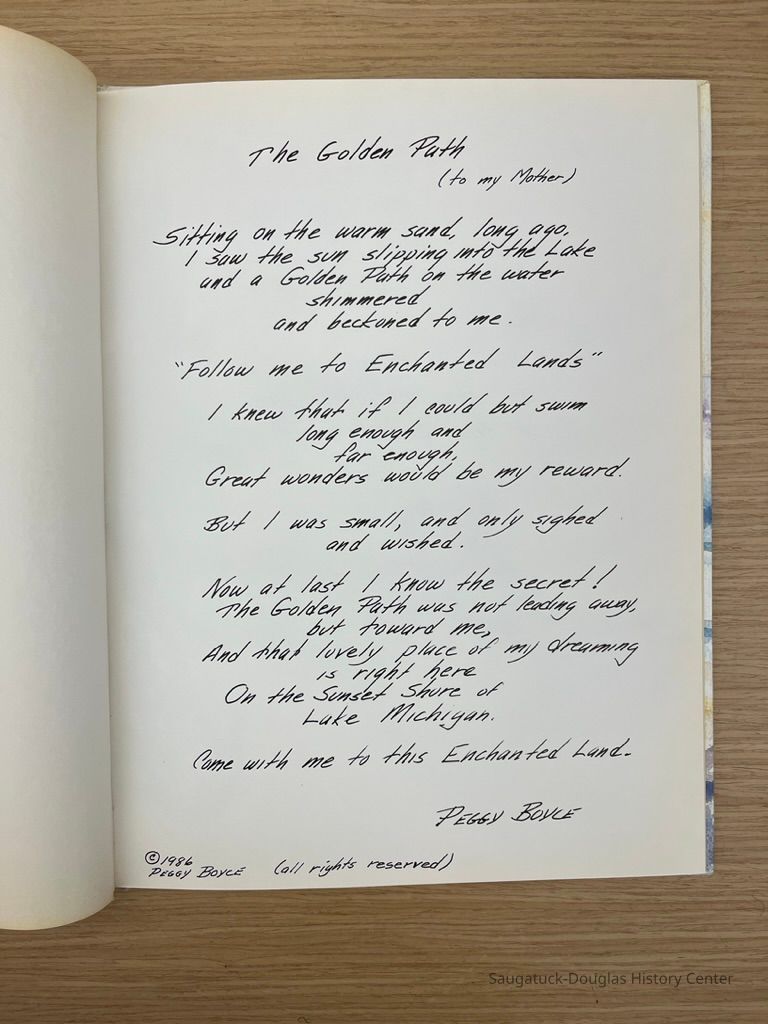 The Golden Path
(to my Mother)
Sitting on the warm sand, long ago,
I saw the sun slipping into the Lake
and a Golden Path on the water
shimmered
and beckoned to me.
"Follow me to Enchanted Lands"
I knew that if I could but swim
long enough and
far enough,
Great wonders would be my reward.
But I was small, and only sighed
and wished.
Now at last I know the secret!
The Golden Path was not leading away,
but toward me,
And that lovely place of my dreaming
is right here
On the Sunset Shore of
Lake Michigan.
Come with me to this Enchanted Land.
PEGGY BOYCE
©1986
PEGGY BOYCE (all rights reserved)
Saugatuck-Douglas History Center